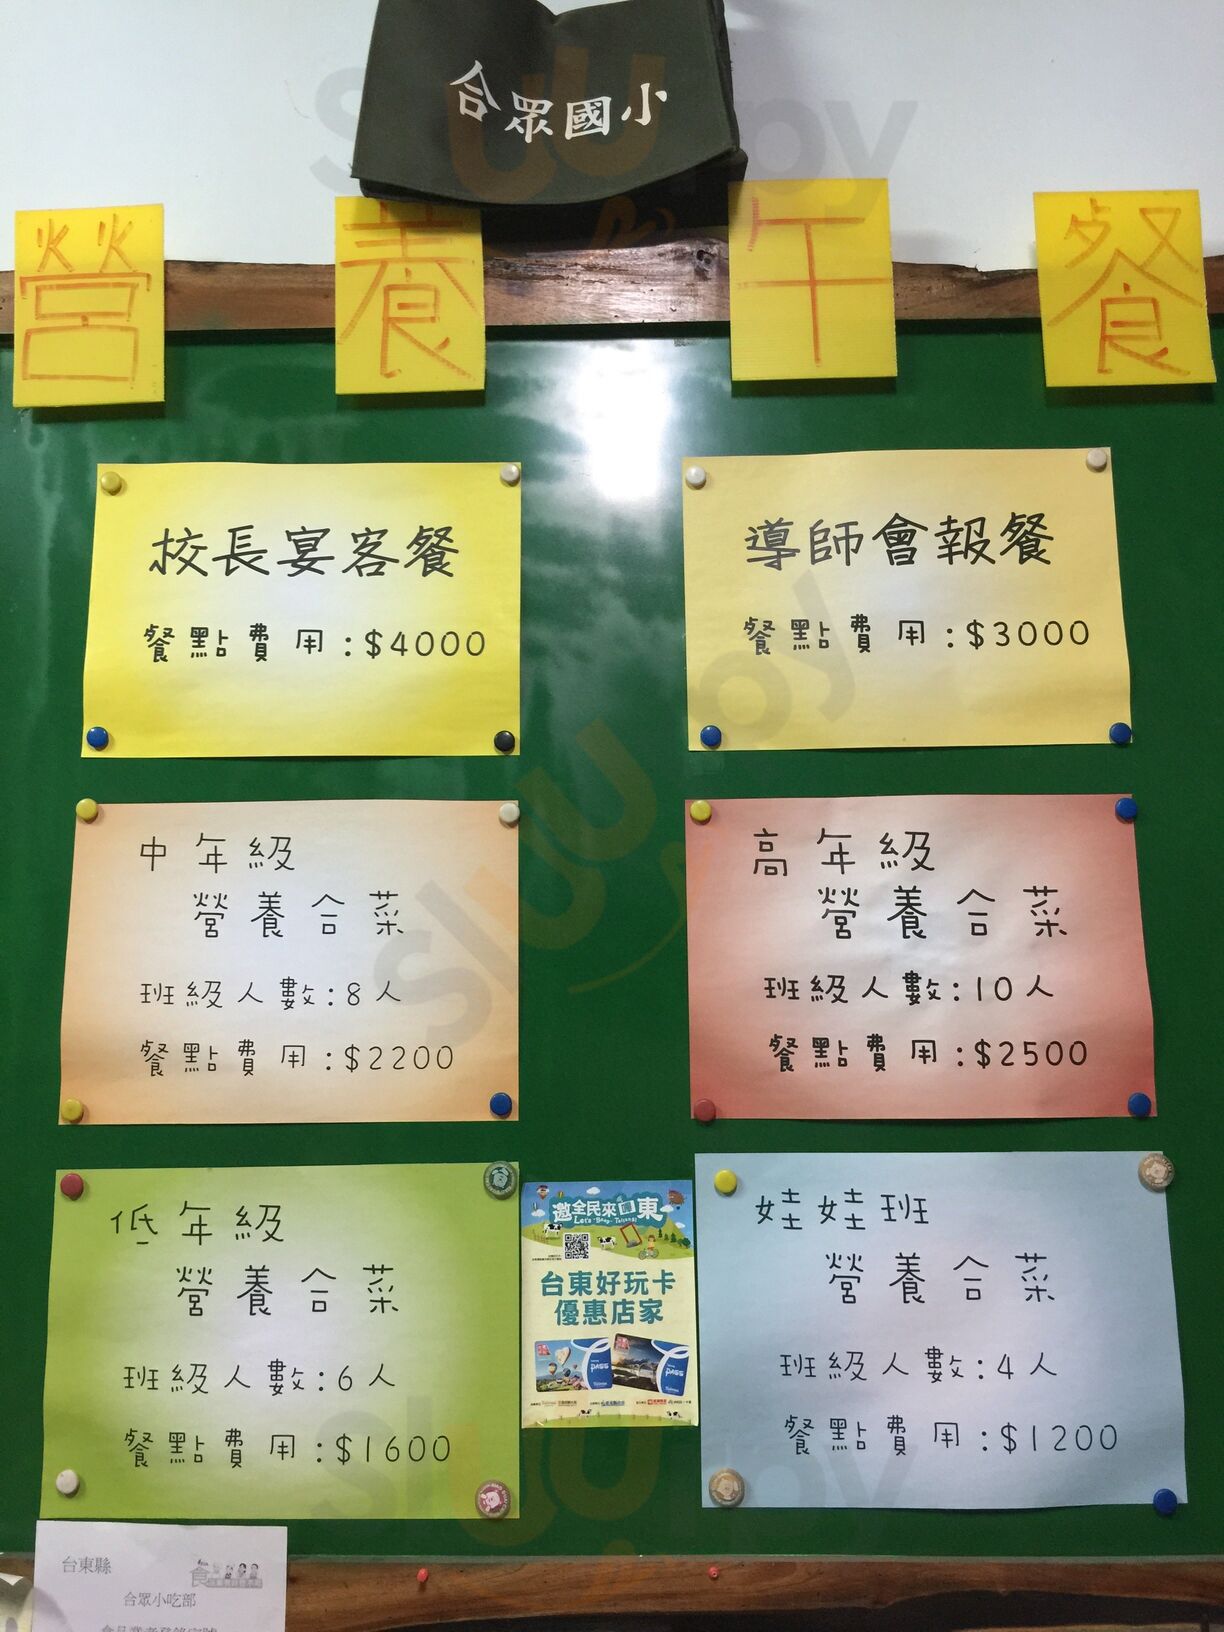 合眾國小
營養午餐
校長宴客餐
餐點費用:$4000
導師會報餐
餐點費用:$3000
中年級
營養合菜
班級人數:8人
餐點費用:$2200
高年級
營養合菜
班級人數:10人
餐點費用:$2500
低年級
營養合菜
班級人數:6人
餐點費用:$1600
邀全民來東
台東好玩卡
優惠店家
PASS
娃娃班
營養合菜
班級人數:4人
餐點費用:$1200
台東縣
合眾小吃部
sluurpy
sluurpy
sluurpy
sluurpy